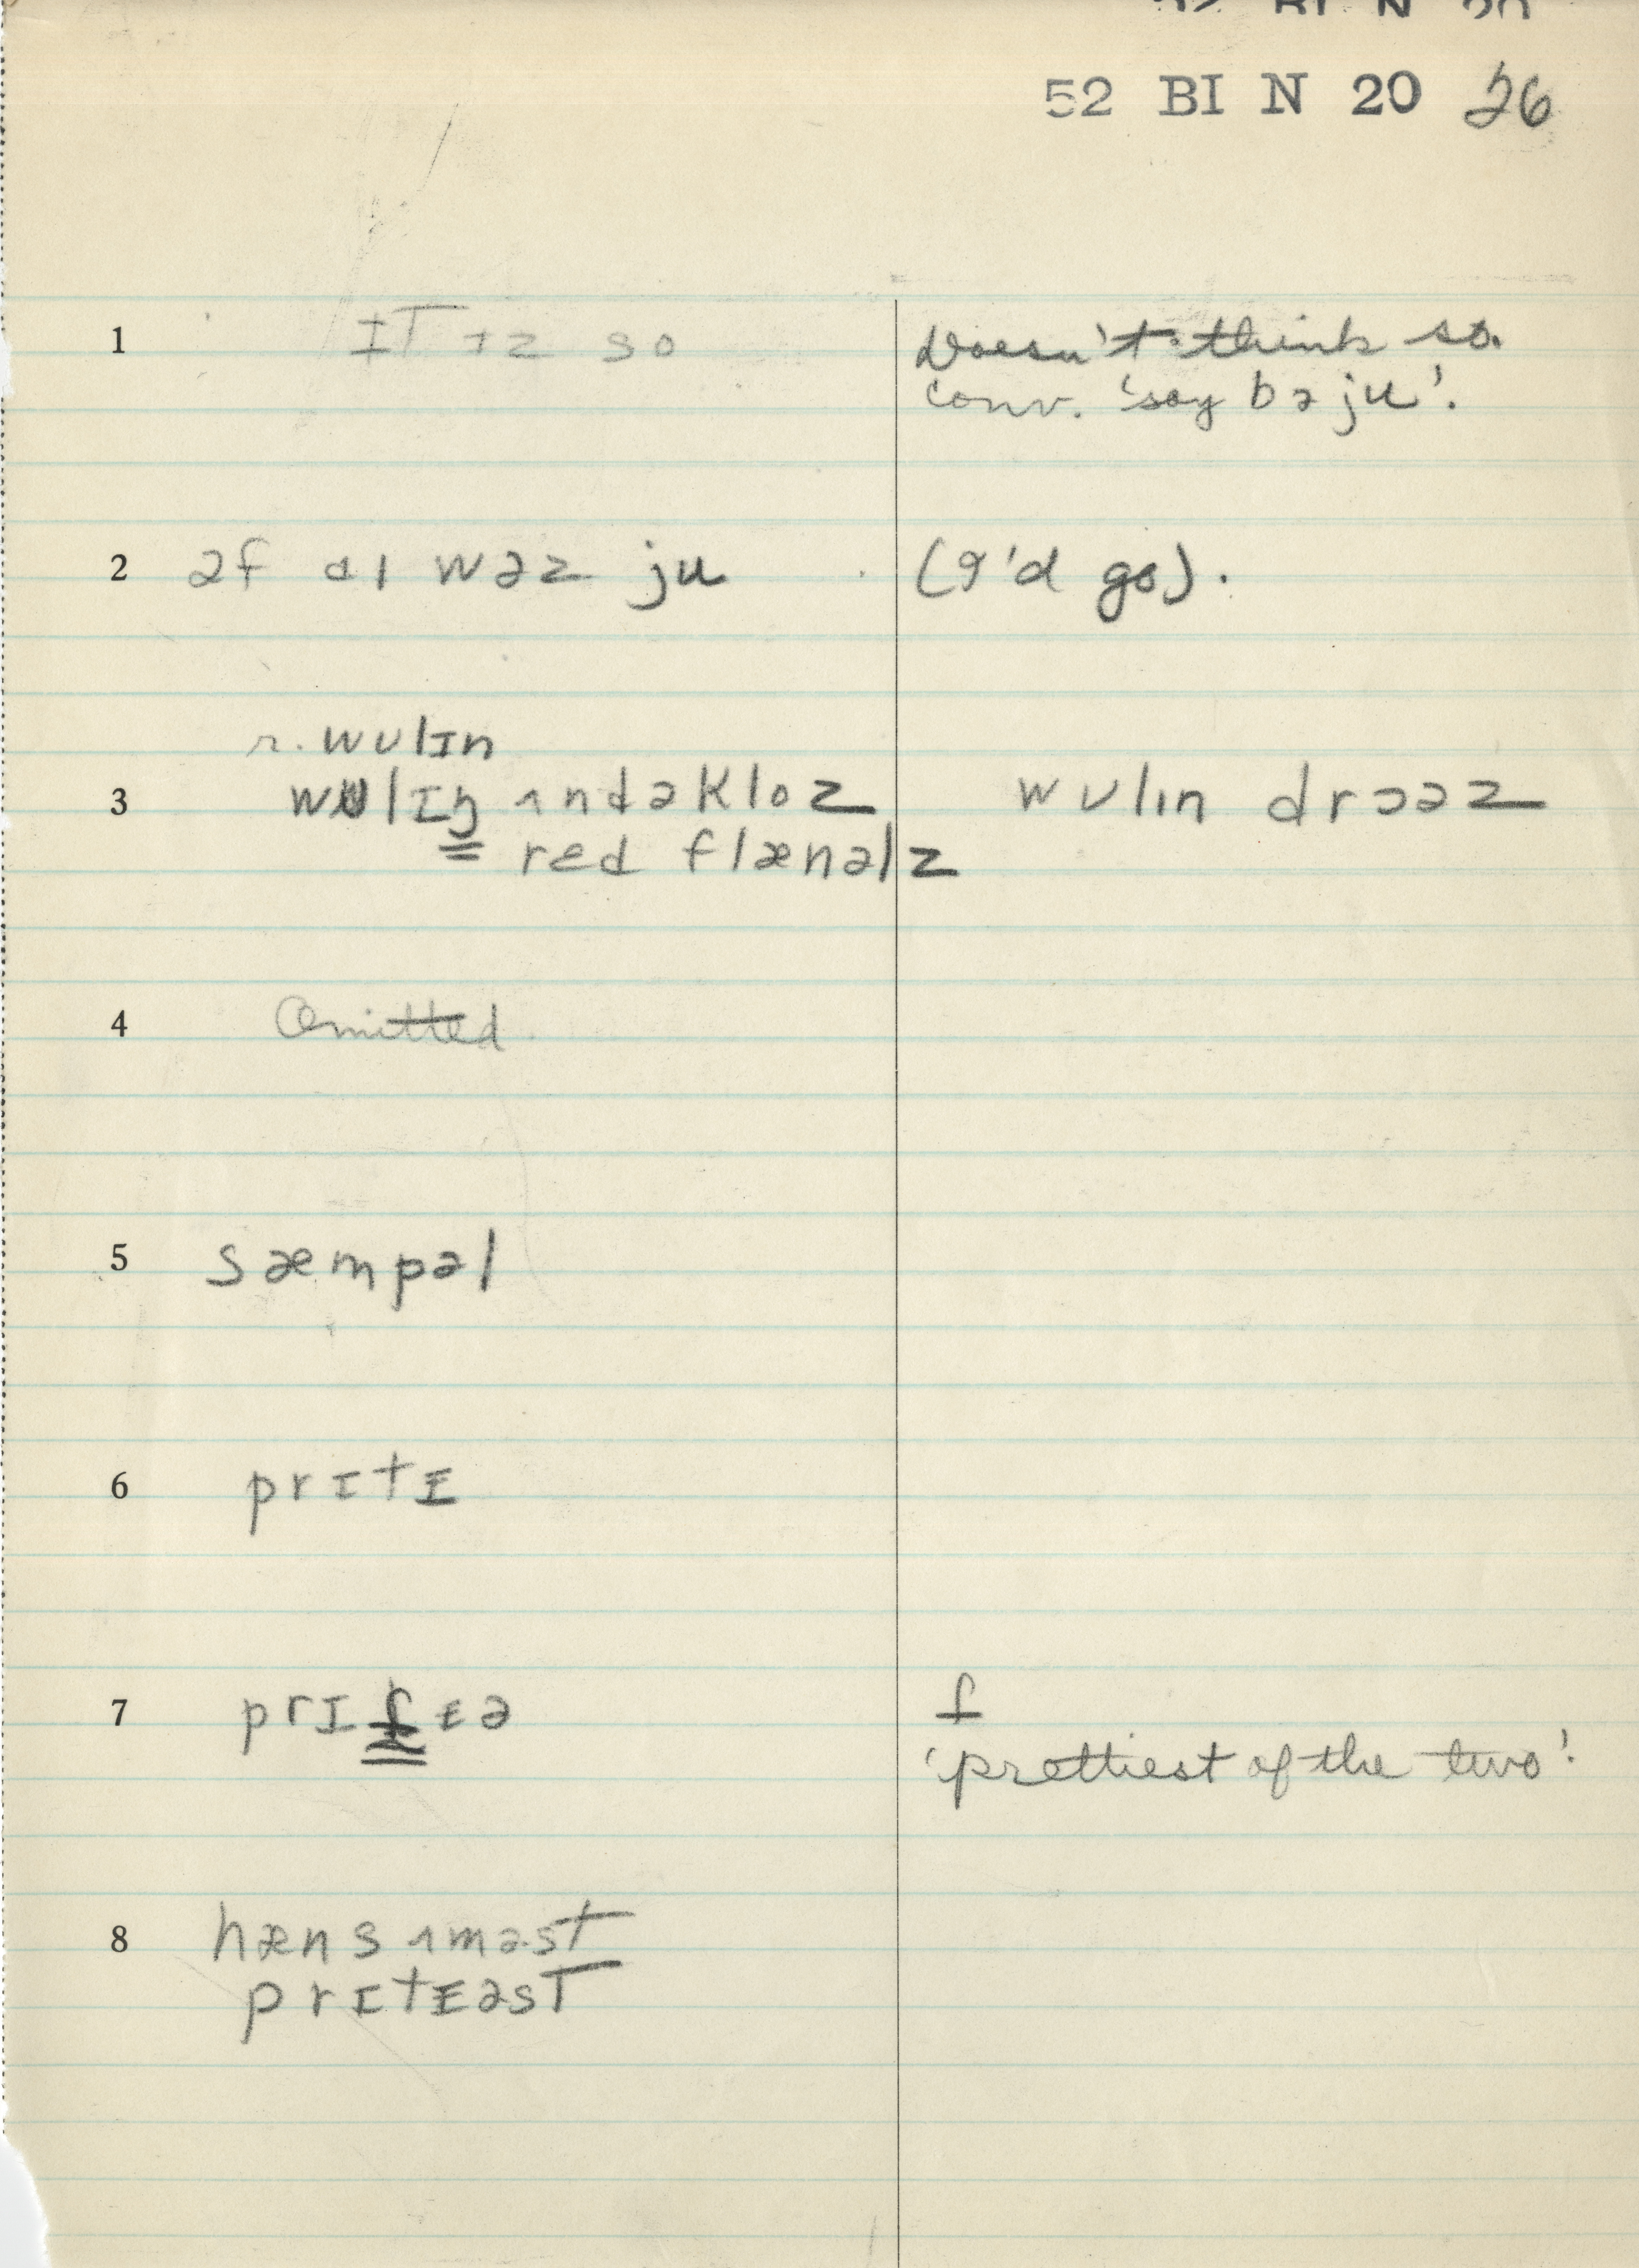 52 BI N 20 26
1 ɪt ɪz so Doesn't think so.
conv. 'say bəju'.
2 əf aɪ wəz ju (I'd go).
r. wʊlɪn
3 wʊlɪŋ ʌndəkloz wʊlɪn drɔəz
red flænəlz
4 Omitted
5 sæmpəl
6 prɪtɪ
7 prɪ ɪə
'prettiest of the two'.
8 hænsʌməst
prɪtɪəst